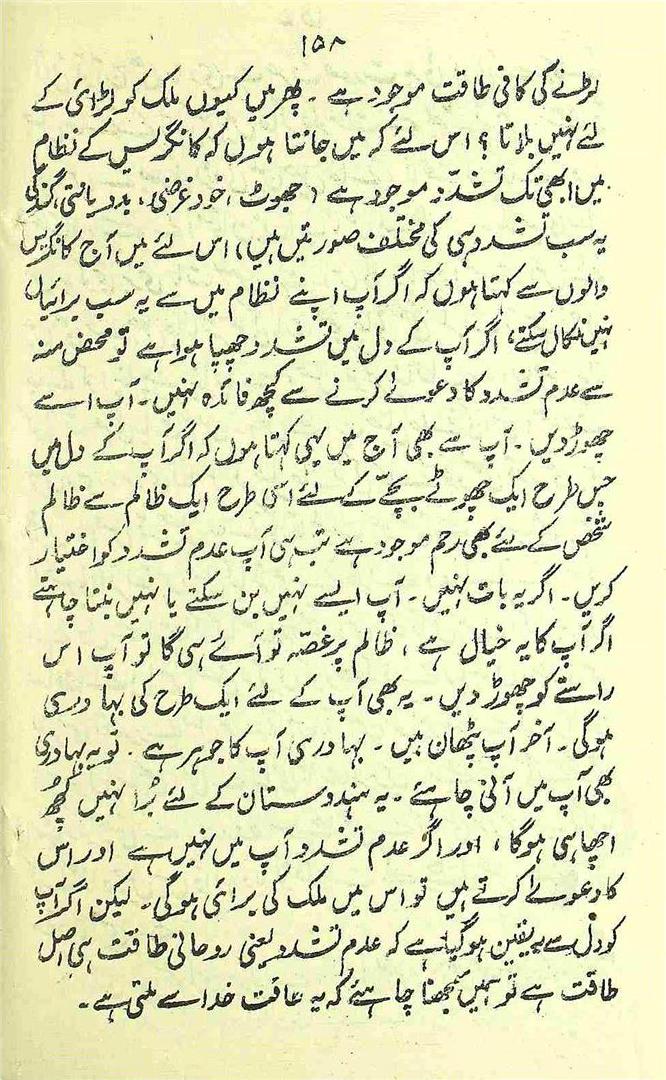 ۱۵۸
لڑنے کی کافی طاقت موجود ہے ۔ پھر میں کیوں ملک کو لڑائی کے
لئے نہیں بلاتا ؟ اس لئے کہ میں جانتا ہوں کہ کانگریس کے نظام
میں ابھی تک تشدّد موجود ہے (جھوٹ، خود غرضی، بددیانتی، گندگی
یہ سب تشدد ہی کی مختلف صورتیں ہیں) اس لئے میں آج کانگریس
والوں سے کہتا ہوں کہ اگر آپ اپنے نظام میں سے یہ سب برائیاں
نہیں نکال سکتے، اگر آپ کے دل میں تشدد چھپا ہوا ہے تو محض منہ
سے عدم تشدد کا دعوےٰ کرنے سے کچھ فائدہ نہیں ۔ آپ اسے
چھوڑ دیں ۔ آپ سے بھی آج میں یہی کہتا ہوں کہ اگر آپ کے دل میں
جس طرح ایک چھوٹے بچّے کے لئے اسی طرح ایک ظالم سے ظالم
شخص کے لئے بھی رحم موجود ہے تب ہی آپ عدم تشدد کو اختیار
کریں ۔ اگر یہ بات نہیں ۔ آپ ایسے نہیں بن سکتے یا نہیں بننا چاہتے
اگر آپ کا یہ خیال ہے ، ظالم پر غصّہ تو آئے ہی گا تو آپ اس
راستے کو چھوڑ دیں ۔ یہ بھی آپ کے لئے ایک طرح کی بہادری
ہوگی ۔ آخر آپ پٹھان ہیں ۔ بہادری آپ کا جوہر ہے ۔ تو یہ بہادری
بھی آپ میں آنی چاہئے ۔ یہ ہندوستان کے لئے بُرا نہیں کچھ
اچھا ہی ہوگا ، اور اگر عدم تشدد آپ میں نہیں ہے اور اس
کا دعوےٰ کرتے ہیں تو اس میں ملک کی برائی ہوگی ۔ لیکن اگر آپ
کو دل سے یہ یقین ہوگیا ہے کہ عدم تشدد یعنی روحانی طاقت ہی اصل
طاقت ہے تو ہمیں سمجھنا چاہئے کہ یہ طاقت خدا سے ملتی ہے ۔